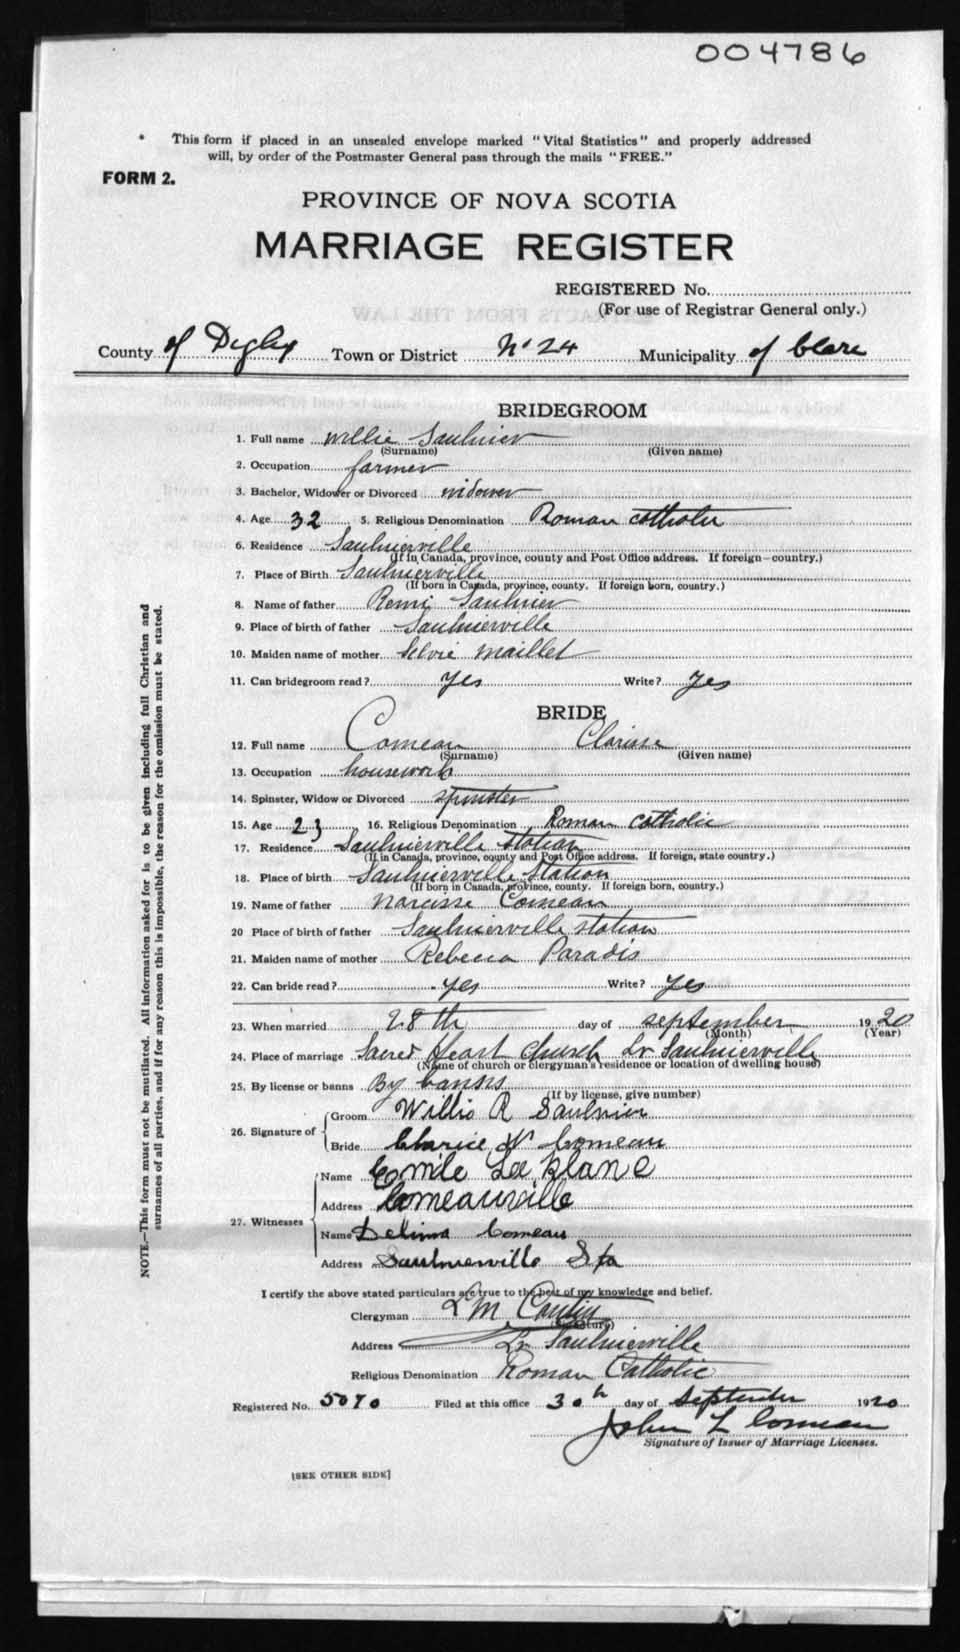 004786
* This form if placed in an unsealed envelope marked "Vital Statistics" and properly addressed
will, by order of the Postmaster General pass through the mails "FREE."
FORM 2.
PROVINCE OF NOVA SCOTIA
MARRIAGE REGISTER
REGISTERED No.
(For use of Registrar General only.)
County of Digby Town or District No 24 Municipality of Clare
BRIDEGROOM
1. Full name Willie Saulnier
(Surname) (Given name)
2. Occupation farmer
3. Bachelor, Widower or Divorced widower
4. Age 32 5. Religious Denomination Roman Catholic
6. Residence Saulnierville
(If in Canada, province, county and Post Office address. If foreign—country.)
7. Place of Birth Saulnierville
(If born in Canada, province, county. If foreign born, country.)
8. Name of father Remi Saulnier
9. Place of birth of father Saulnierville
10. Maiden name of mother Selvie Maillet
11. Can bridegroom read? yes Write? yes
BRIDE
12. Full name Comeau Clarisse
(Surname) (Given name)
13. Occupation housework
14. Spinster, Widow or Divorced spinster
15. Age 23 16. Religious Denomination Roman Catholic
17. Residence Saulnierville station
(If in Canada, province, county and Post Office address. If foreign, state country.)
18. Place of birth Saulnierville Station
(If born in Canada, province, county. If foreign born, country.)
19. Name of father Narcisse Comeau
20 Place of birth of father Saulnierville station
21. Maiden name of mother Rebecca Paradis
22. Can bride read? yes Write? yes
23. When married 28th day of september 1920
(Month) (Year)
24. Place of marriage Sacred Heart Church Lr Saulnierville
(Name of church or clergyman's residence or location of dwelling house)
25. By license or banns By banns
(If by license, give number)
26. Signature of
Groom Willie R Saulnier
Bride Clarice N Comeau
27. Witnesses
Name Emile LeBlanc
Address Comeauville
Name Delima Comeau
Address Saulnierville Sta
I certify the above stated particulars are true to the best of my knowledge and belief.
Clergyman L M
(Signature)
Address Lr Saulnierville
Religious Denomination Roman Catholic
Registered No. 5070 Filed at this office 30th day of september 1920
John L Comeau
Signature of Issuer of Marriage Licenses.
[SEE OTHER SIDE]
NOTE.—This form must not be mutilated. All information asked for is to be given including full Christian and
surnames of all parties, and if for any reason this is impossible, the reason for the omission must be stated.